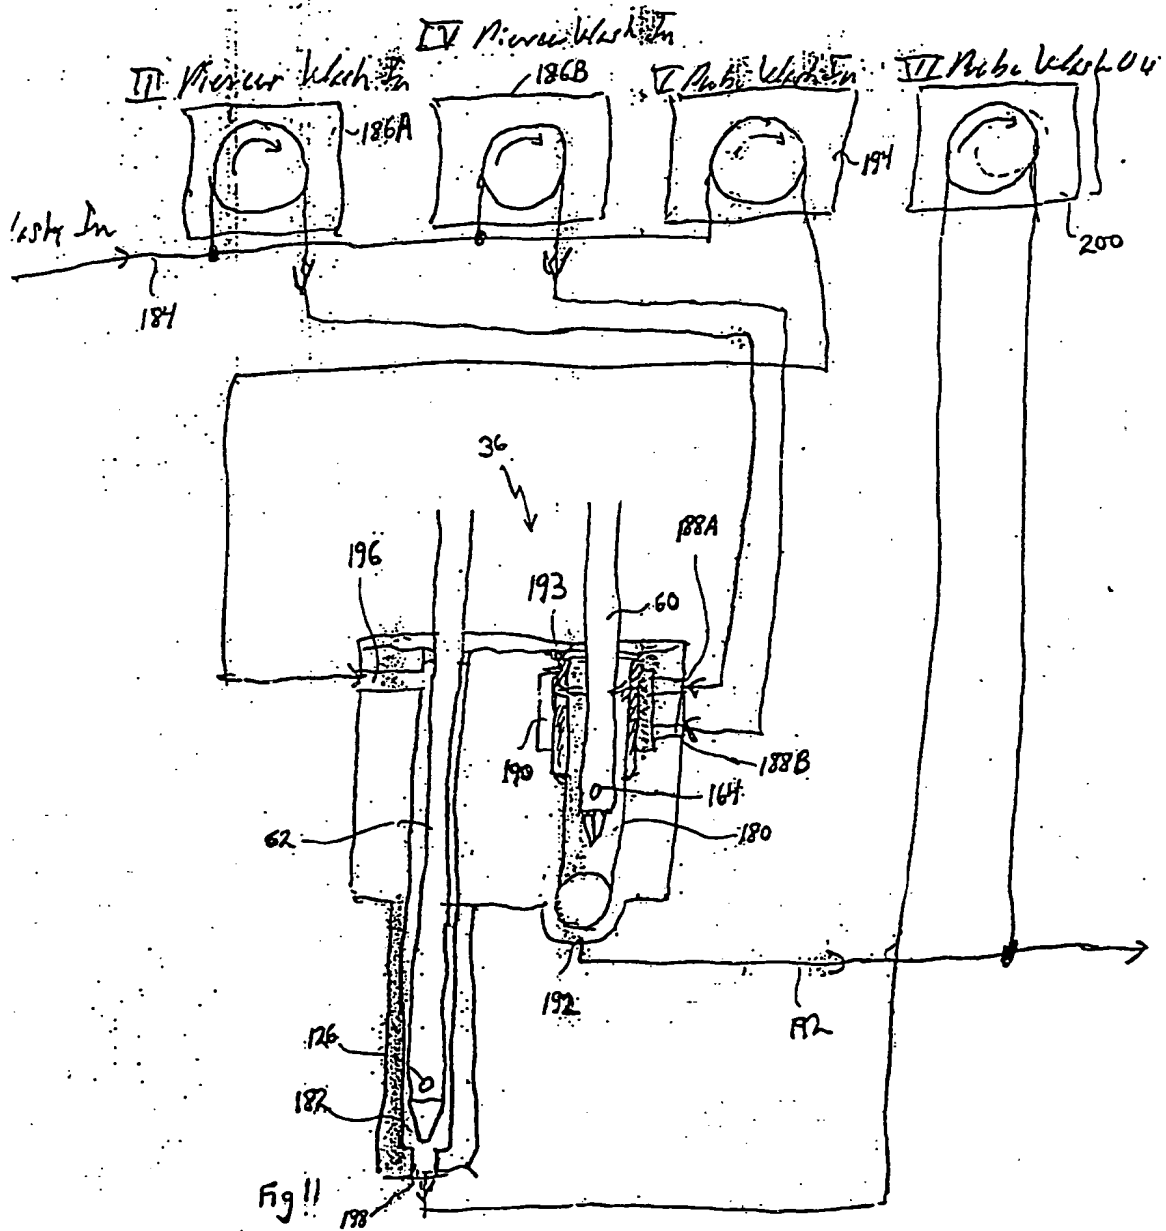 IV Piercer Wash In
III Piercer Wash In
186B
V Probe Wash In
VII Probe Wash Ou
186A
194
200
Wash In
184
36
188A
196
193
60
190
188B
164
62
180
192
126
182
Fig 11
198